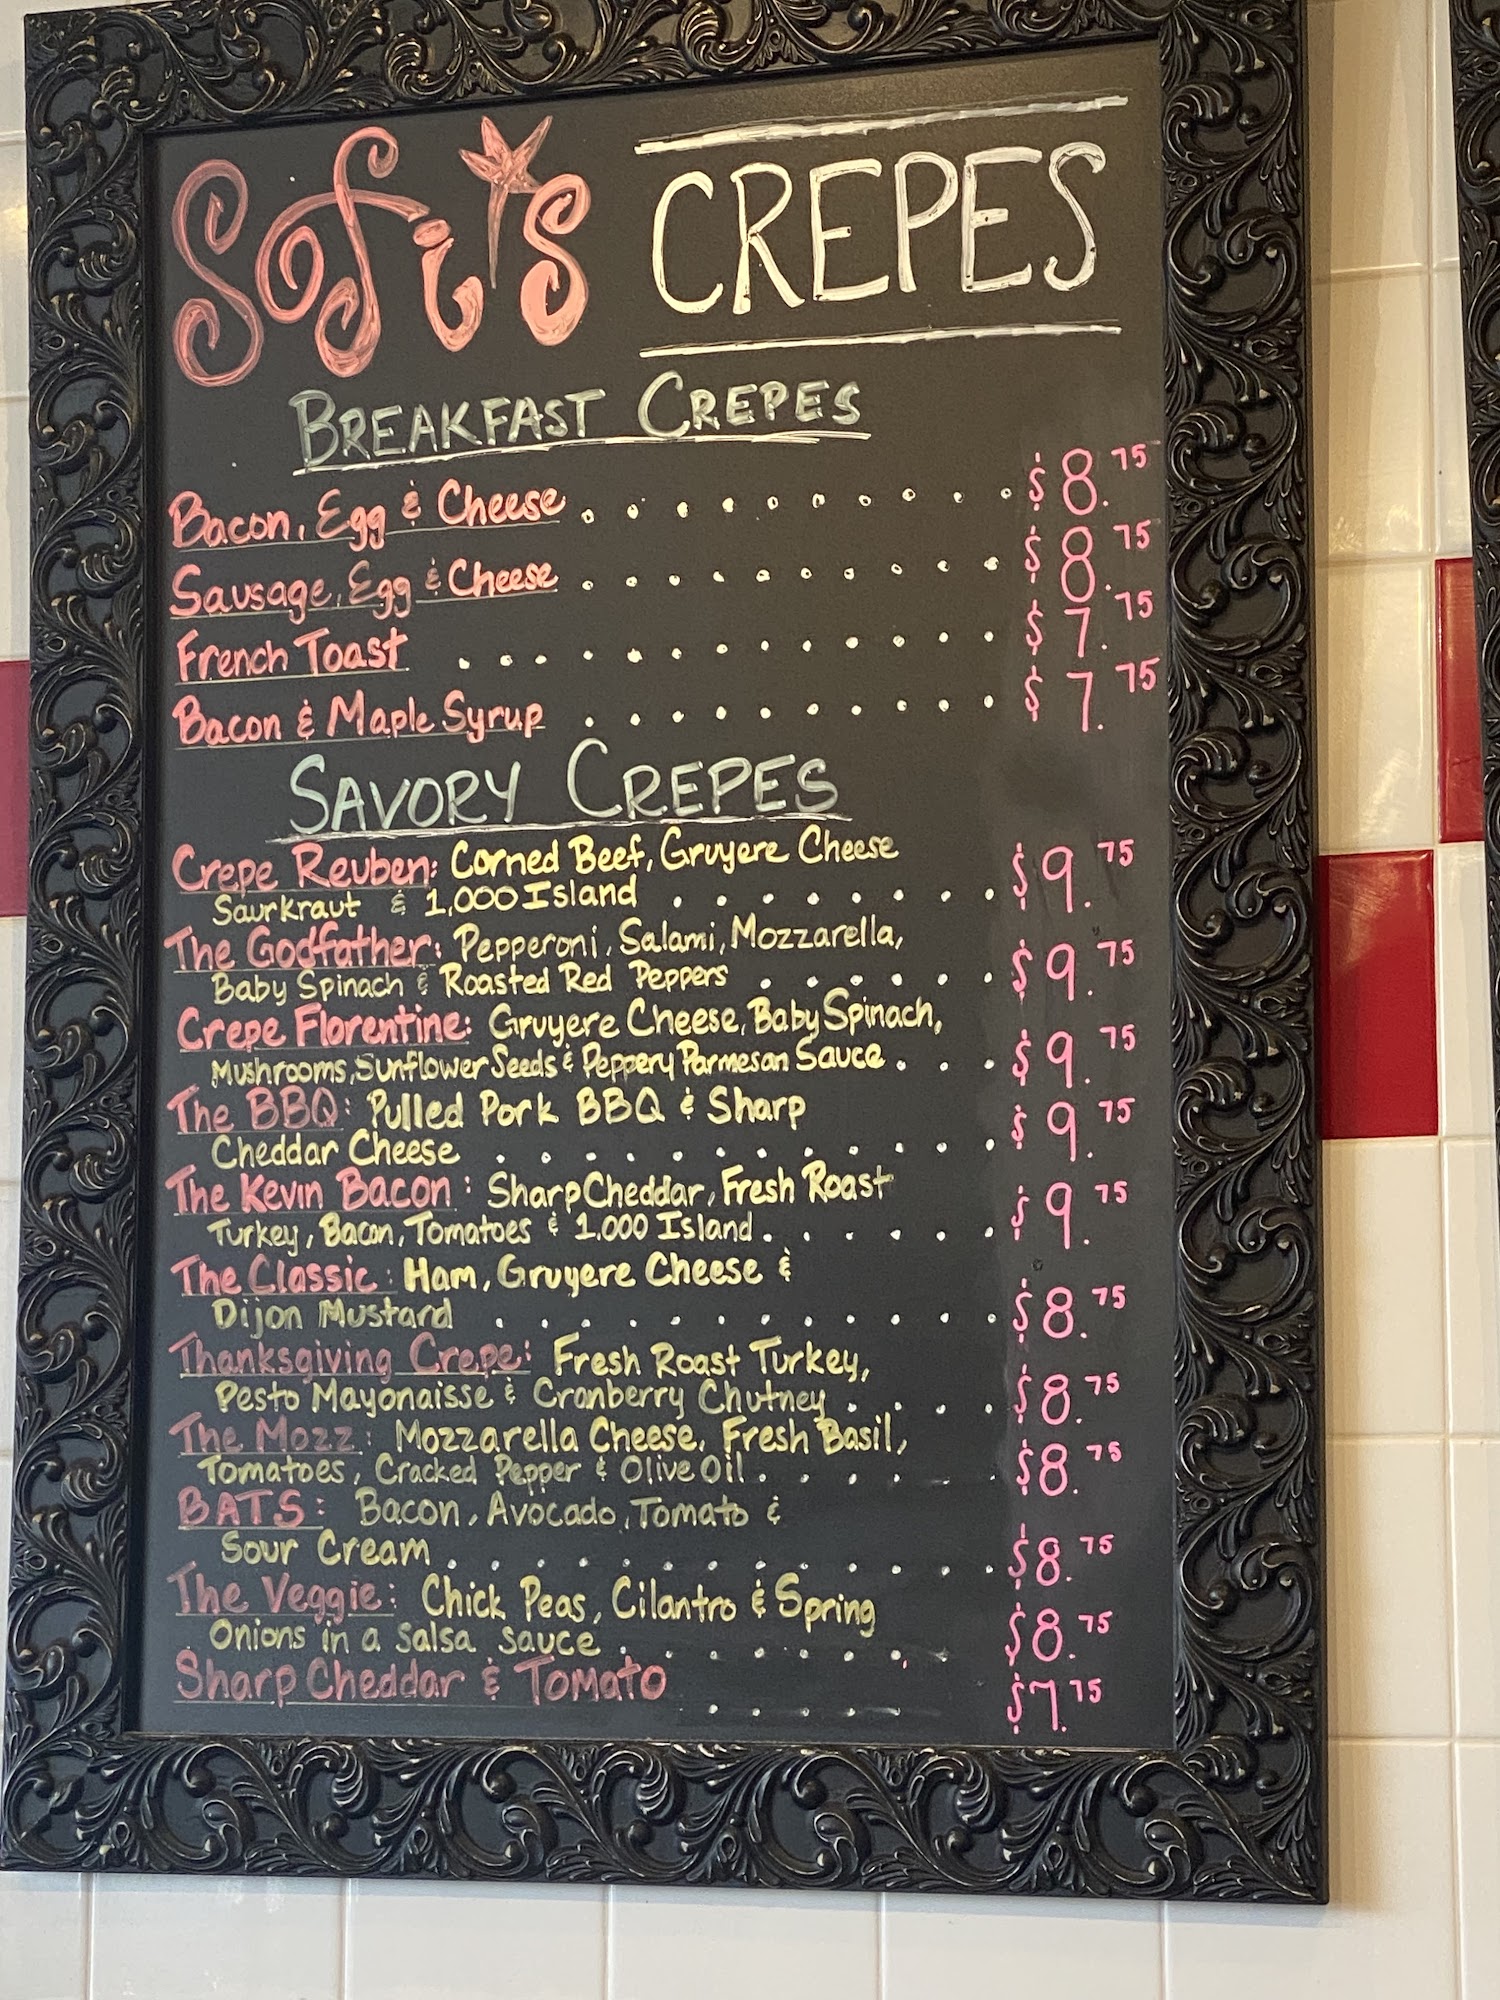 Sofi's CREPES
BREAKFAST CREPES
Bacon, Egg & Cheese . . . . . . . . . . $8.75
Sausage, Egg & Cheese . . . . . . . . . . $8.75
French Toast . . . . . . . . . . . . . $7.75
Bacon & Maple Syrup . . . . . . . . . . $7.75
SAVORY CREPES
Crepe Reuben: Corned Beef, Gruyere Cheese
Saurkraut & 1,000 Island . . . . . . . . $9.75
The Godfather: Pepperoni, Salami, Mozzarella,
Baby Spinach & Roasted Red Peppers . . . . . . $9.75
Crepe Florentine: Gruyere Cheese, Baby Spinach,
Mushrooms, Sunflower Seeds & Peppery Parmesan Sauce . . . $9.75
The BBQ: Pulled Pork BBQ & Sharp
Cheddar Cheese . . . . . . . . . . . . $9.75
The Kevin Bacon: Sharp Cheddar, Fresh Roast
Turkey, Bacon, Tomatoes & 1,000 Island . . . . . . $9.75
The Classic: Ham, Gruyere Cheese &
Dijon Mustard . . . . . . . . . . . . $8.75
Thanksgiving Crepe: Fresh Roast Turkey,
Pesto Mayonaisse & Cranberry Chutney . . . . $8.75
The Mozz: Mozzarella Cheese, Fresh Basil,
Tomatoes, Cracked Pepper & Olive Oil . . . . . . $8.75
BATS: Bacon, Avocado, Tomato &
Sour Cream . . . . . . . . . . . . . $8.75
The Veggie: Chick Peas, Cilantro & Spring
Onions in a Salsa sauce . . . . . . . . $8.75
Sharp Cheddar & Tomato . . . . . $7.75